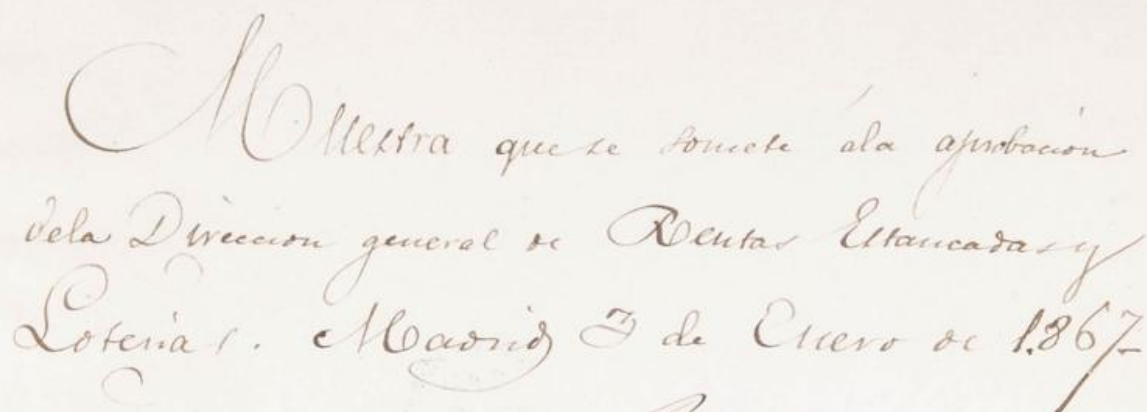 Muestra que se somete á la aprobacion
de la Direccion general de Rentas Estancadas y
Loterias. Madrid 3 de Enero de 1.867